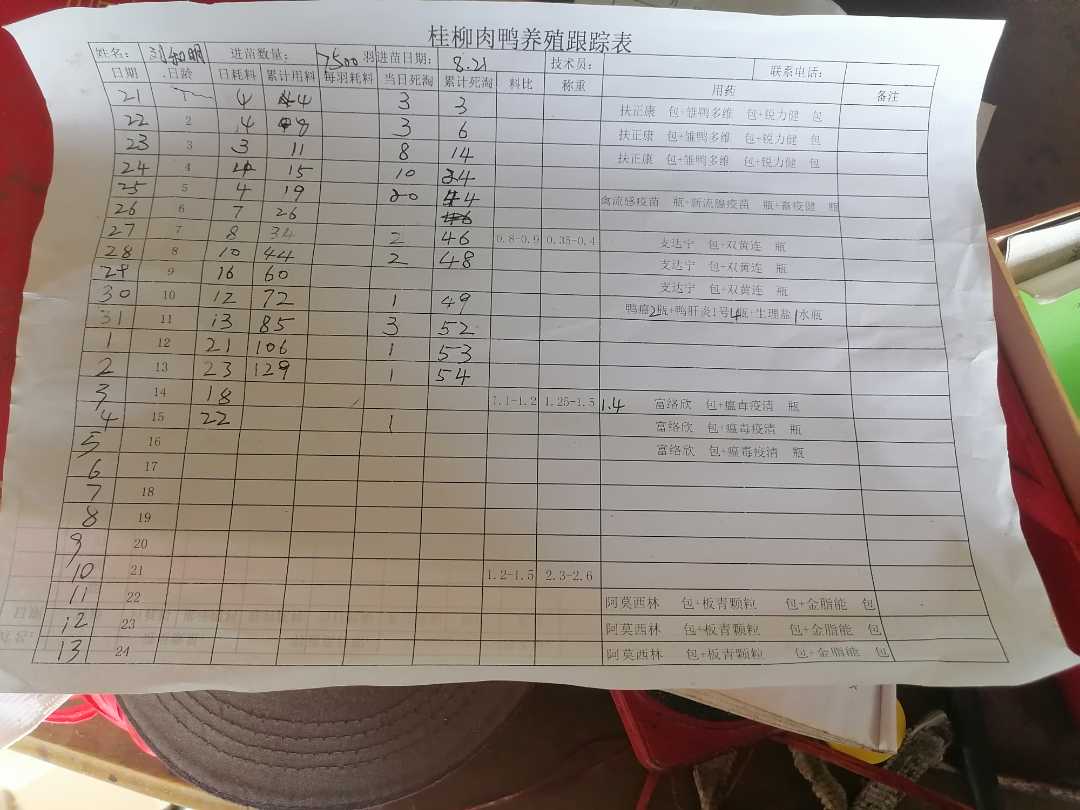 桂柳肉鸭养殖跟踪表
姓名: 刘和明 进苗数量: 7500 羽进苗日期: 8.21 技术员: 联系电话:
日期 日龄 日耗料 累计用料 每羽耗料 当日死淘 累计死淘 料比 称重 用药 备注
21 1 4 4 3 3 扶正康 包+雏鸭多维 包+锐力健 包
22 2 4 8 3 6 扶正康 包+雏鸭多维 包+锐力健 包
23 3 3 11 8 14 扶正康 包+雏鸭多维 包+锐力健 包
24 4 4 15 10 24
25 5 4 19 20 44 禽流感疫苗 瓶+新流腺疫苗 瓶+畜疫健 瓶
26 6 7 26
27 7 8 34 2 46 0.8-0.9 0.35-0.4 支达宁 包+双黄连 瓶
28 8 10 44 2 48 支达宁 包+双黄连 瓶
29 9 16 60 支达宁 包+双黄连 瓶
30 10 12 72 1 49 鸭瘟2瓶+鸭肝炎1号4瓶+生理盐1水瓶
31 11 13 85 3 52
1 12 21 106 1 53
2 13 23 129 1 54
3 14 18 1.1-1.2 1.25-1.5 1.4 富络欣 包+瘟毒疫清 瓶
4 15 22 1 富络欣 包+瘟毒疫清 瓶
5 16 富络欣 包+瘟毒疫清 瓶
6 17
7 18
8 19
9 20
10 21 1.2-1.5 2.3-2.6
11 22 阿莫西林 包+板青颗粒 包+金脂能 包
12 23 阿莫西林 包+板青颗粒 包+金脂能 包
13 24 阿莫西林 包+板青颗粒 包+金脂能 包